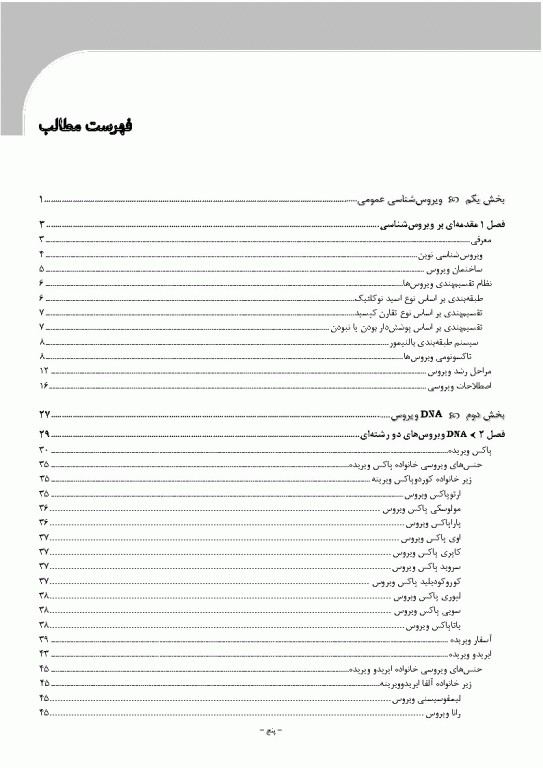 فهرست مطالب
بخش یکم ویروس‌شناسی عمومی ۱
فصل ۱ مقدمه‌ای بر ویروس‌شناسی ۳
معرفی ۳
ویروس‌شناسی نوین ۴
ساختمان ویروس ۵
نظام تقسیم‌بندی ویروس‌ها ۶
طبقه‌بندی بر اساس نوع اسید نوکلئیک ۶
تقسیم‌بندی بر اساس نوع تقارن کپسید ۷
تقسیم‌بندی بر اساس پوشش‌دار بودن یا نبودن ۷
سیستم طبقه‌بندی بالتیمور ۸
تاکسونومی ویروس‌ها ۸
مراحل رشد ویروس ۱۲
اصطلاحات ویروسی ۱۶
بخش دوم DNA ویروس ۲۷
فصل ۲ DNA ویروس‌های دو رشته‌ای ۲۹
پاکس ویریده ۳۰
جنس‌های ویروسی خانواده پاکس ویریده ۳۵
زیر خانواده کوردوپاکس ویرینه ۳۵
ارتوپاکس ویروس ۳۵
مولوسکی پاکس ویروس ۳۶
پاراپاکس ویروس ۳۶
اوی پاکس ویروس ۳۷
کاپری پاکس ویروس ۳۷
سروید پاکس ویروس ۳۷
کوروکودیلید پاکس ویروس ۳۷
لپوری پاکس ویروس ۳۸
سویی پاکس ویروس ۳۸
یاتاپاکس ویروس ۳۸
آسفار ویریده ۳۹
ایریدو ویریده ۴۳
جنس‌های ویروسی خانواده ایریدو ویریده ۴۵
زیر خانواده آلفا ایریدوویرینه ۴۵
لیمفوسیستی ویروس ۴۵
رانا ویروس ۴۵
- پنج -